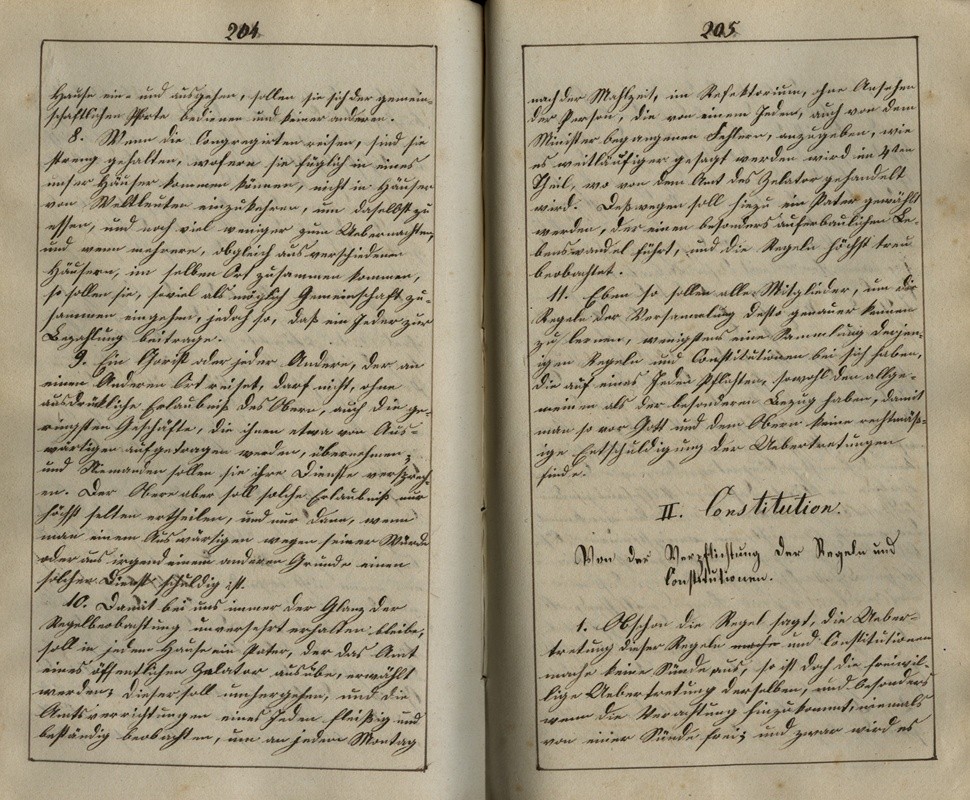 204.
Hause ein- und ausgehen, sollen sie sich der gemein-
schaftlichen Pforte bedienen und keiner anderen.
8. Wenn die Congregirten reisen, sind sie
streng gehalten, wofern sie füglich in eines
unser Häuser kommen können, nicht in Häuser
von Weltleuten einzukehren, um daselbst zu
essen, und noch viel weniger zum Uebernachten;
und wenn mehrere, obgleich aus verschiedenen
Häusern, im selben Ort zusammen kommen,
so sollen sie, soviel als möglich Gemeinschaft zu-
sammen eingehen, jedoch so, daß ein Jeder zur
Bezahlung beitrage.
9. Ein Chorist oder jeder Andere, der an
einen Anderen Ort reiset, darf nicht, ohne
ausdrückliche Erlaubniß des Obern, auch die ge-
ringsten Geschäfte, die ihnen etwa von Aus-
wärtigen aufgetragen werden, übernehmen;
und Niemanden sollen sie ihre Dienste versprech-
en. Der Obere aber soll solche Erlaubniß nur
höchst selten ertheilen, und nur dann, wenn
man einem Auswärtigen wegen seiner Würde
oder aus irgend einem anderen Grunde einen
solchen Dienst schuldig ist.
10. Damit bei uns immer der Glanz der
Regelbeobachtung unversehrt erhalten bleibe,
soll in jedem Hause ein Pater, der das Amt
eines öffentlichen Zelator ausübe, erwählt
werden; dieser soll umhergehen, und die
Amtsverrichtungen eines Jeden fleißig und
beständig beobachten, um an jedem Montag
205.
nach der Mahlzeit, im Refektorium, ohne Ansehen
der Person, die von einem Jeden, auch von dem
Minister begangenen Fehlern, anzugeben, wie
es weitläufiger gesagt werden wird im 4ten
Theil, wo von dem Amt des Zelator gehandelt
wird. Deßwegen soll hiezu ein Pater gewählt
werden, der einen besonders auferbaulichen Le-
benswandel führt, und die Regeln höchst treu
beobachtet.
11. Eben so sollen alle Mitglieder, um die
Regeln der Versammlung desto genauer kennen
zu lernen, wenigstens eine Sammlung derjen-
igen Regeln und Constitutionen bei sich haben,
die auf eines Jeden Pflichten, sowohl den allge-
meinen als der besonderen Bezug haben, damit
man so vor Gott und dem Obern keine rechtmäß-
ige Entschuldigung der Uebertretungen
finde.
II. Constitution.
Von der Verpflichtung der Regeln und
Constitutionen.
1. Obschon die Regel sagt, die Ueber-
tretung dieser Regeln mache und Constitutionen
mache keine Sünde aus, so ist doch die freiwil-
lige Uebertretung derselben, und besonders
wenn die Verachtung hinzukommt, niemals
von einer Sünde frei; und zwar wird es